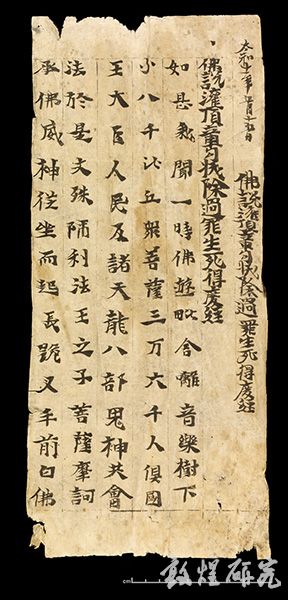 太和十一年五月十五日
佛說灌頂章句拔除過罪生死得度經
佛說灌頂章句拔除過罪生死得度經
如是我聞一時佛遊毗舍離音樂樹下
八千比丘眾菩薩三万六千人俱國
王大臣人民及諸天龍八部鬼神共會
法於是文殊師利法王之子菩薩摩訶
承佛威神從坐而起長跪叉手前白佛
cm
敦煌研究